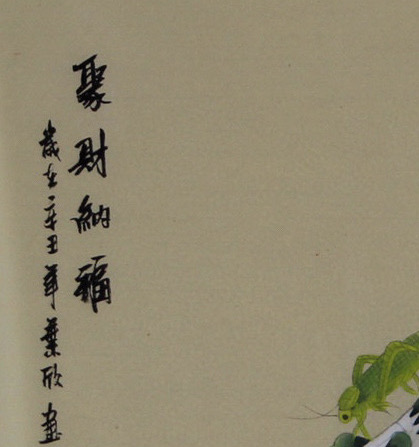 聚财納福
歳在辛丑年葉欣畫